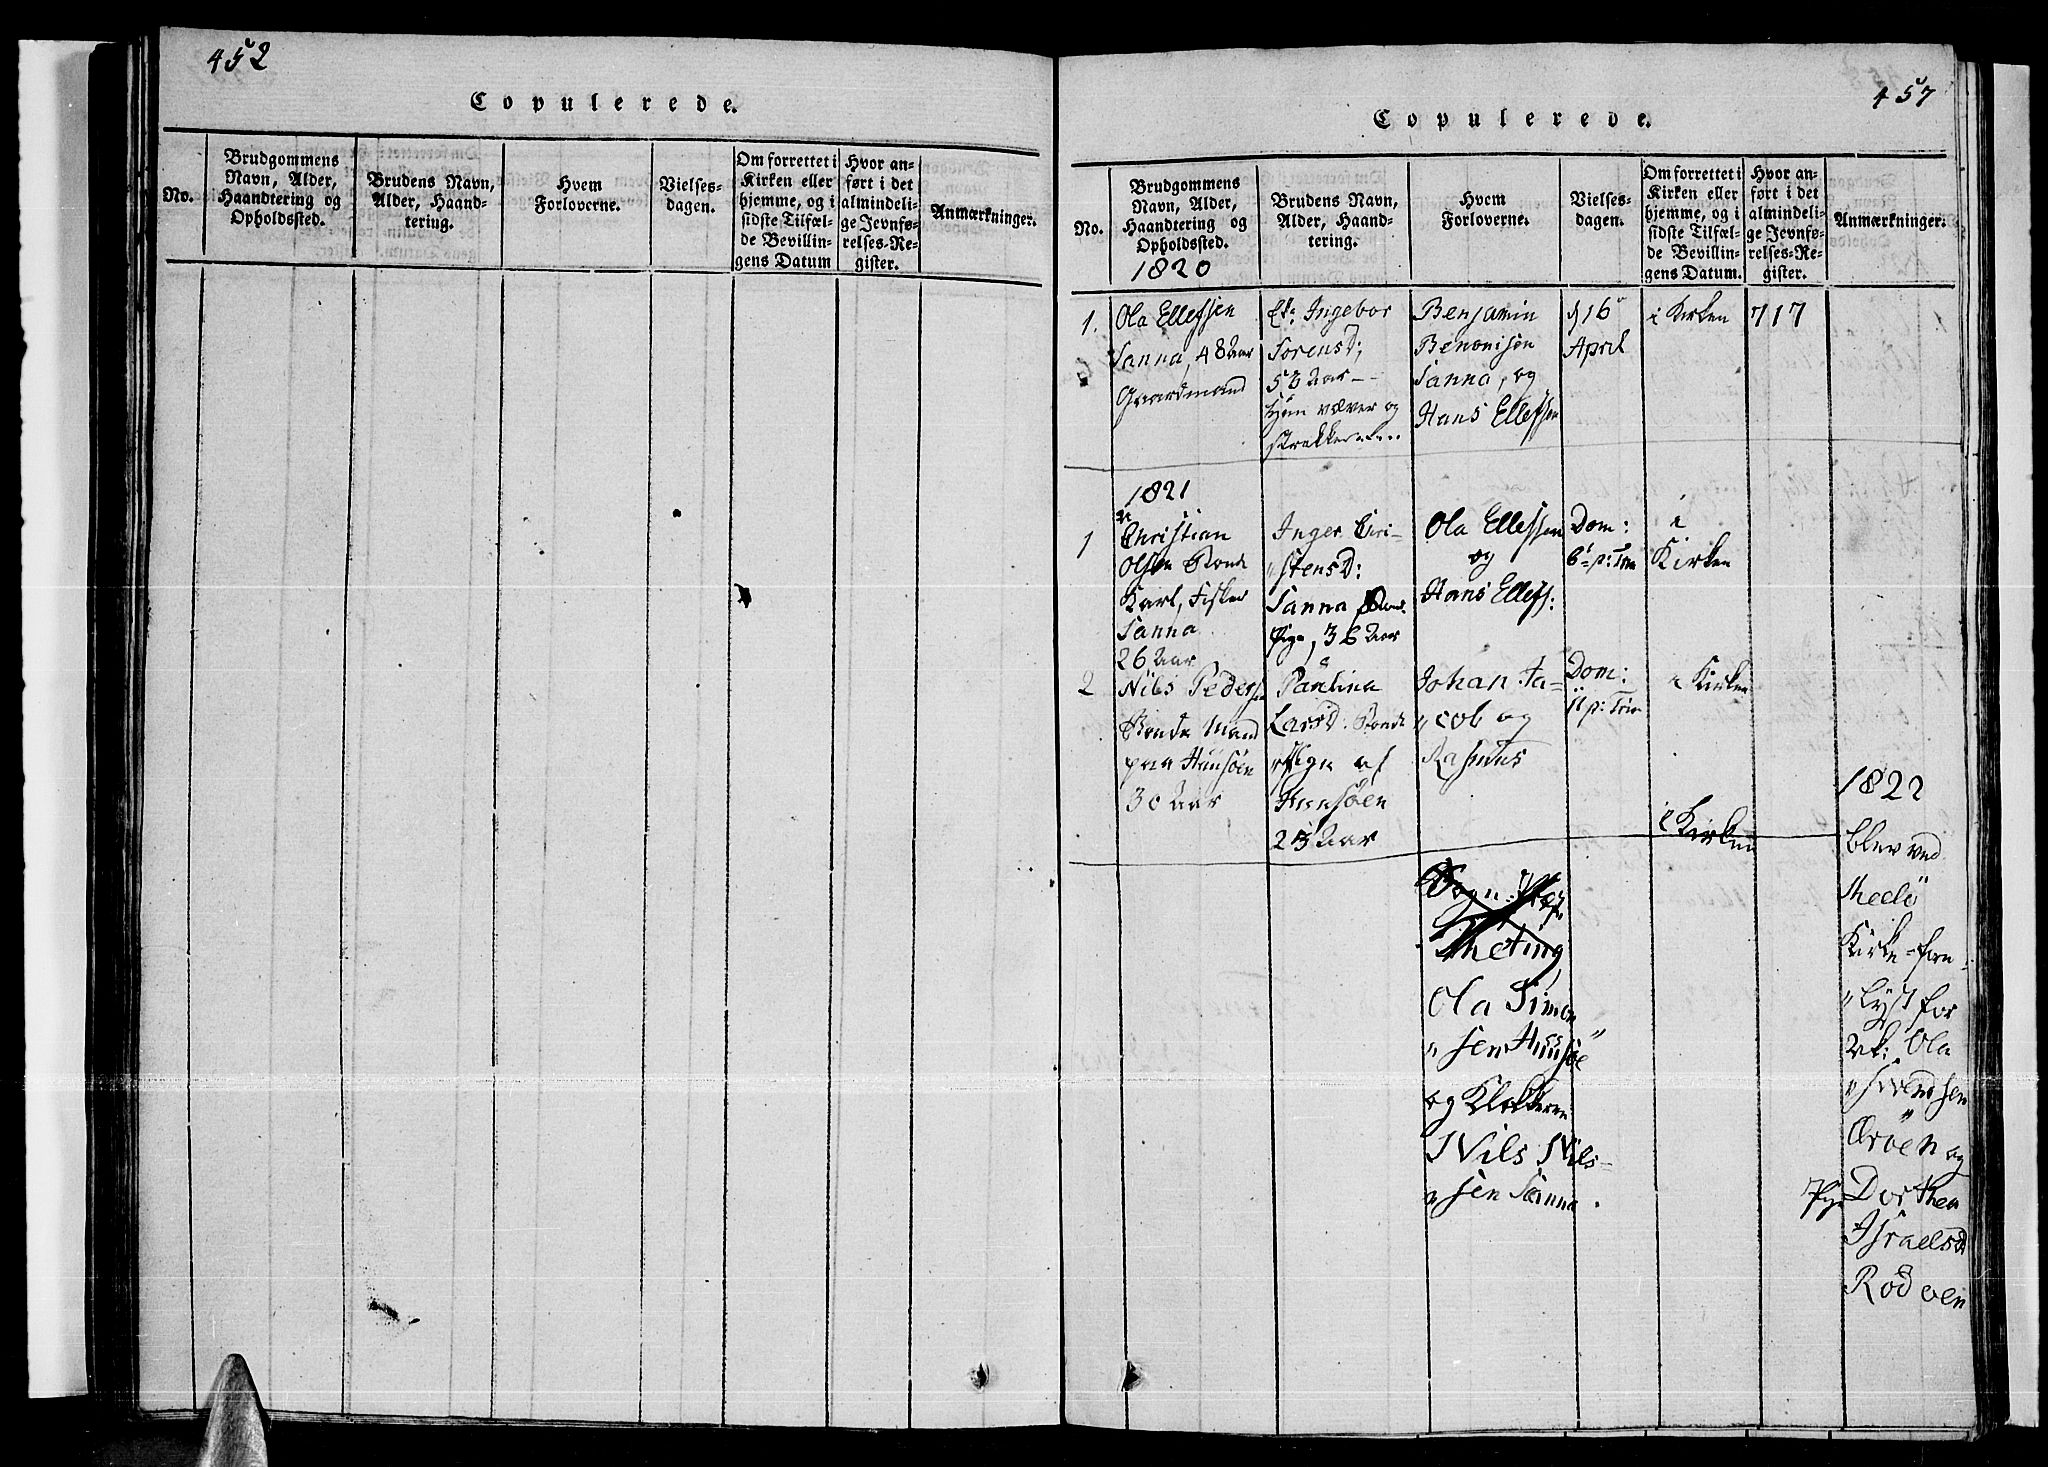 452
Copulerede.
No.
Brudgommens
Navn, Alder,
Haandtering og
Opholdssted.
Brudens Navn,
Alder, Haand-
tering.
Hvem
Forloverne.
Vielses-
dagen.
Om forrettet i
Kirken eller
hjemme, og i
sidste Tilfæl-
de Bevillin-
gens Datum
Hvor an-
ført i det
almindeli-
ge Jevnfø-
relses-Re-
gister.
Anmærkninger.
457
Copulerede.
No.
Brudgommens
Navn, Alder,
Haandtering og
Opholdssted.
1820
Brudens Navn,
Alder, Haand-
tering.
Hvem
Forloverne.
Vielses-
dagen.
Om forrettet i
Kirken eller
hjemme, og i
sidste Tilfæl-
de Bevillin-
gens Datum.
Hvor an-
ført i det
almindeli-
ge Jevnfø-
relses-Re-
gister.
Anmærkninger.
1.
Ola Ellefsen
Sanna, 48 Aar
Gaardmand
Ingebor
Sorensd,
Aar
væver og
Benjamin
Benonisen
Sanna, og
Hans Ellefsen
16
April
i Kirken
717
1821
1
Christian
Olsen Bonde
Karl, Fisker
Sanna
26 Aar
Inger Chri-
stensd:
Sanna
Pige, 36 Aar
Ola Ellefsen
og
Hans Ellefs:
Dom:
6 p: Trin
i
Kirken
2
Nils Peders
Bonde Mand
paa Huusöen
30 Aar
Paulina
Larsd. Bonde
Pige af
Huusöen
23 Aar
Johan Ja-
"cob og
Rasmus
Dom:
11 p: Trin
i Kirken
i Kirken
Ola Simon
"sen Huusöe
og Klokkeren
Nils Nils-
"sen Sanna.
1822
blev ved
Meelö
Kirke
"lyst for
Ola
"Svendsen
og
Pige Dorthea
Israelsd
Rodoen